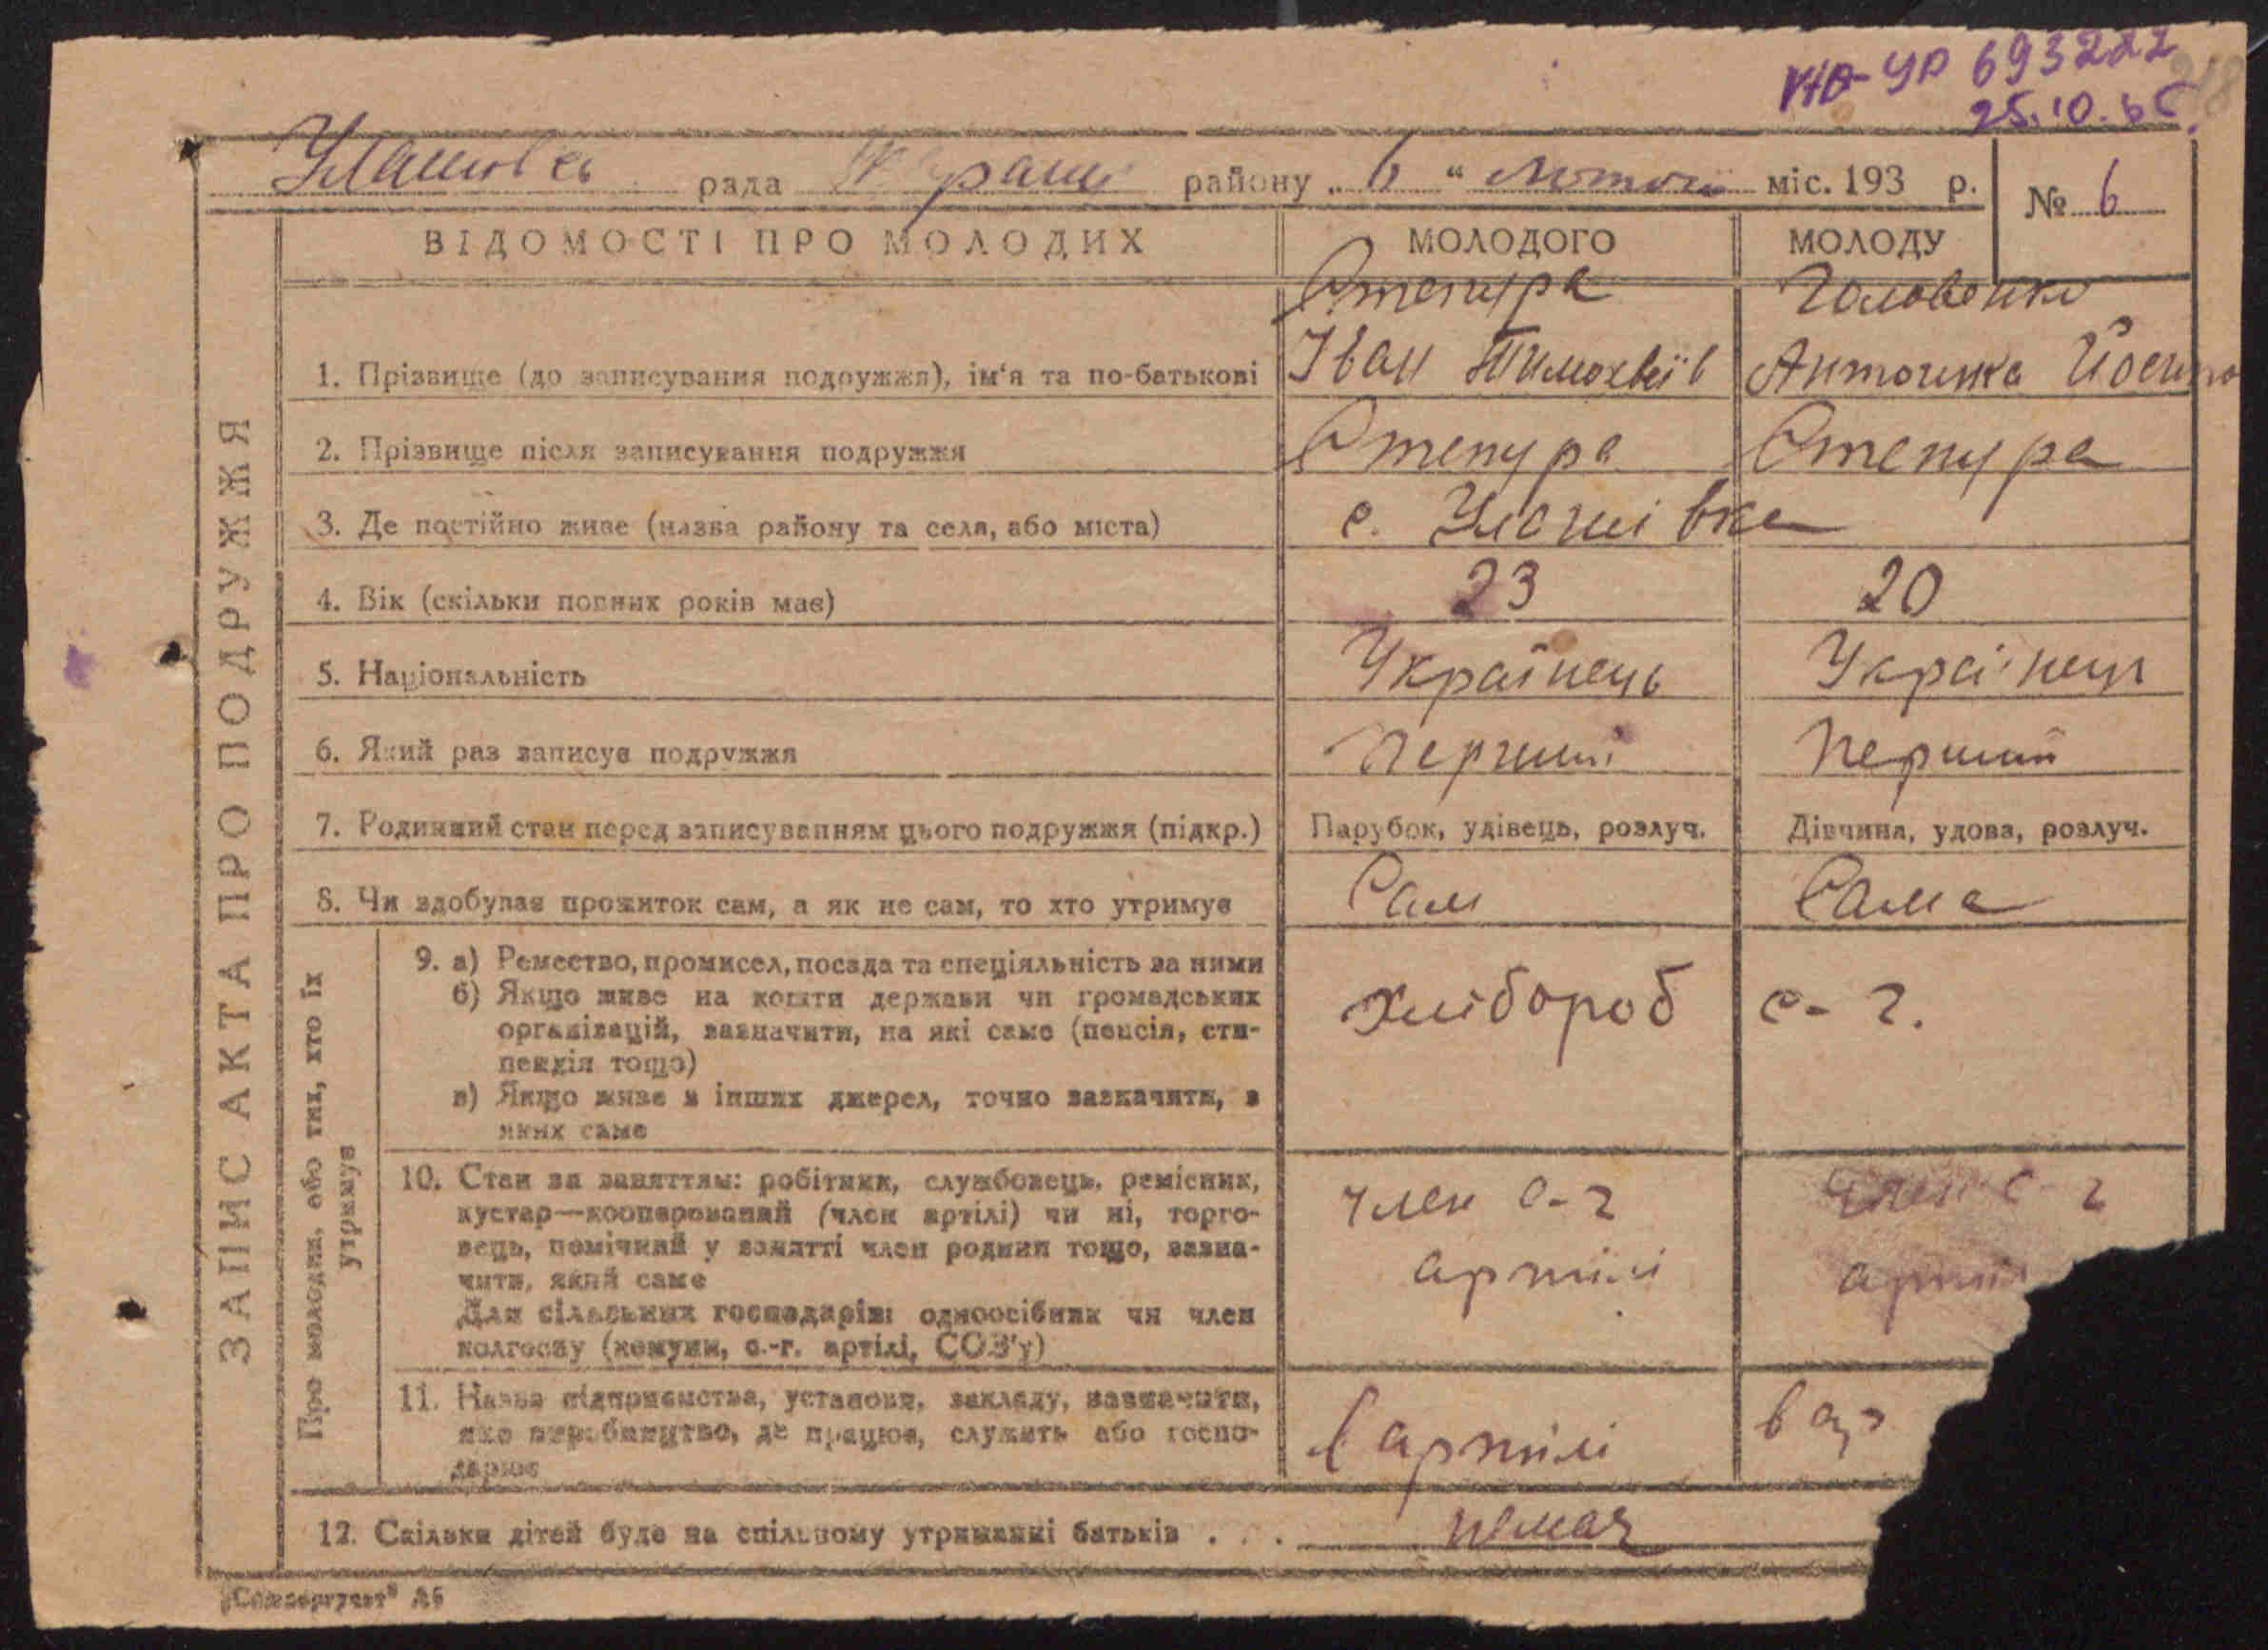 УР 693222
25.10.
рада району „ 6 “ Лютого міс. 193 р.
№ 6
ЗАПИС АКТА ПРО ПОДРУЖЖЯ
ВІДОМОСТІ ПРО МОЛОДИХ МОЛОДОГО МОЛОДУ
Степура
1. Прізвище (до записування подружжя), ім‘я та по-батькові Іван Тимохвіїв Йосипо
2. Прізвище після записування подружжя Степура Степура
3. Де постійно живе (назва району та села, або міста) с. Улашівка
4. Вік (скільки повних років має) 23 20
5. Національність Українець Українец
6. Який раз записує подружжя Перший Перший
7. Родинний стан перед записуванням цього подружжя (підкр.) Парубок, удівець, розлуч. Дівчина, удова, розлуч.
8. Чи здобував прожиток сам, а як не сам, то хто утримує Сам Сама
Про молодих, або тих, хто їх
утримує
9. а) Ремество, промисел, посада та спеціяльність за ними
б) Якщо живе на кошти держави чи громадських
організацій, зазначити, на які саме (пенсія, сти-
пендія тощо)
в) Якщо живе з інших джерел, точно зазначити, з
яких саме
Хлібороб с-г.
10. Стан за заняттям: робітник, службовець, ремісник,
кустар—кооперований (член артілі) чи ні, торго-
вець, помічний у занятті член родини тощо, зазна-
чити, який саме
Для сільських господарів: одноосібник чи член
колгоспу (комуни, с.-г. артілі, СОЗ'у)
член с-г член с-г
артілі
11. Назва підприємства, установи, закладу, зазначити,
яке виробництво, де працює, служить або госпо-
дарює
в артілі в
12. Скільки дітей буде на спільному утриманні батьків . . . немає